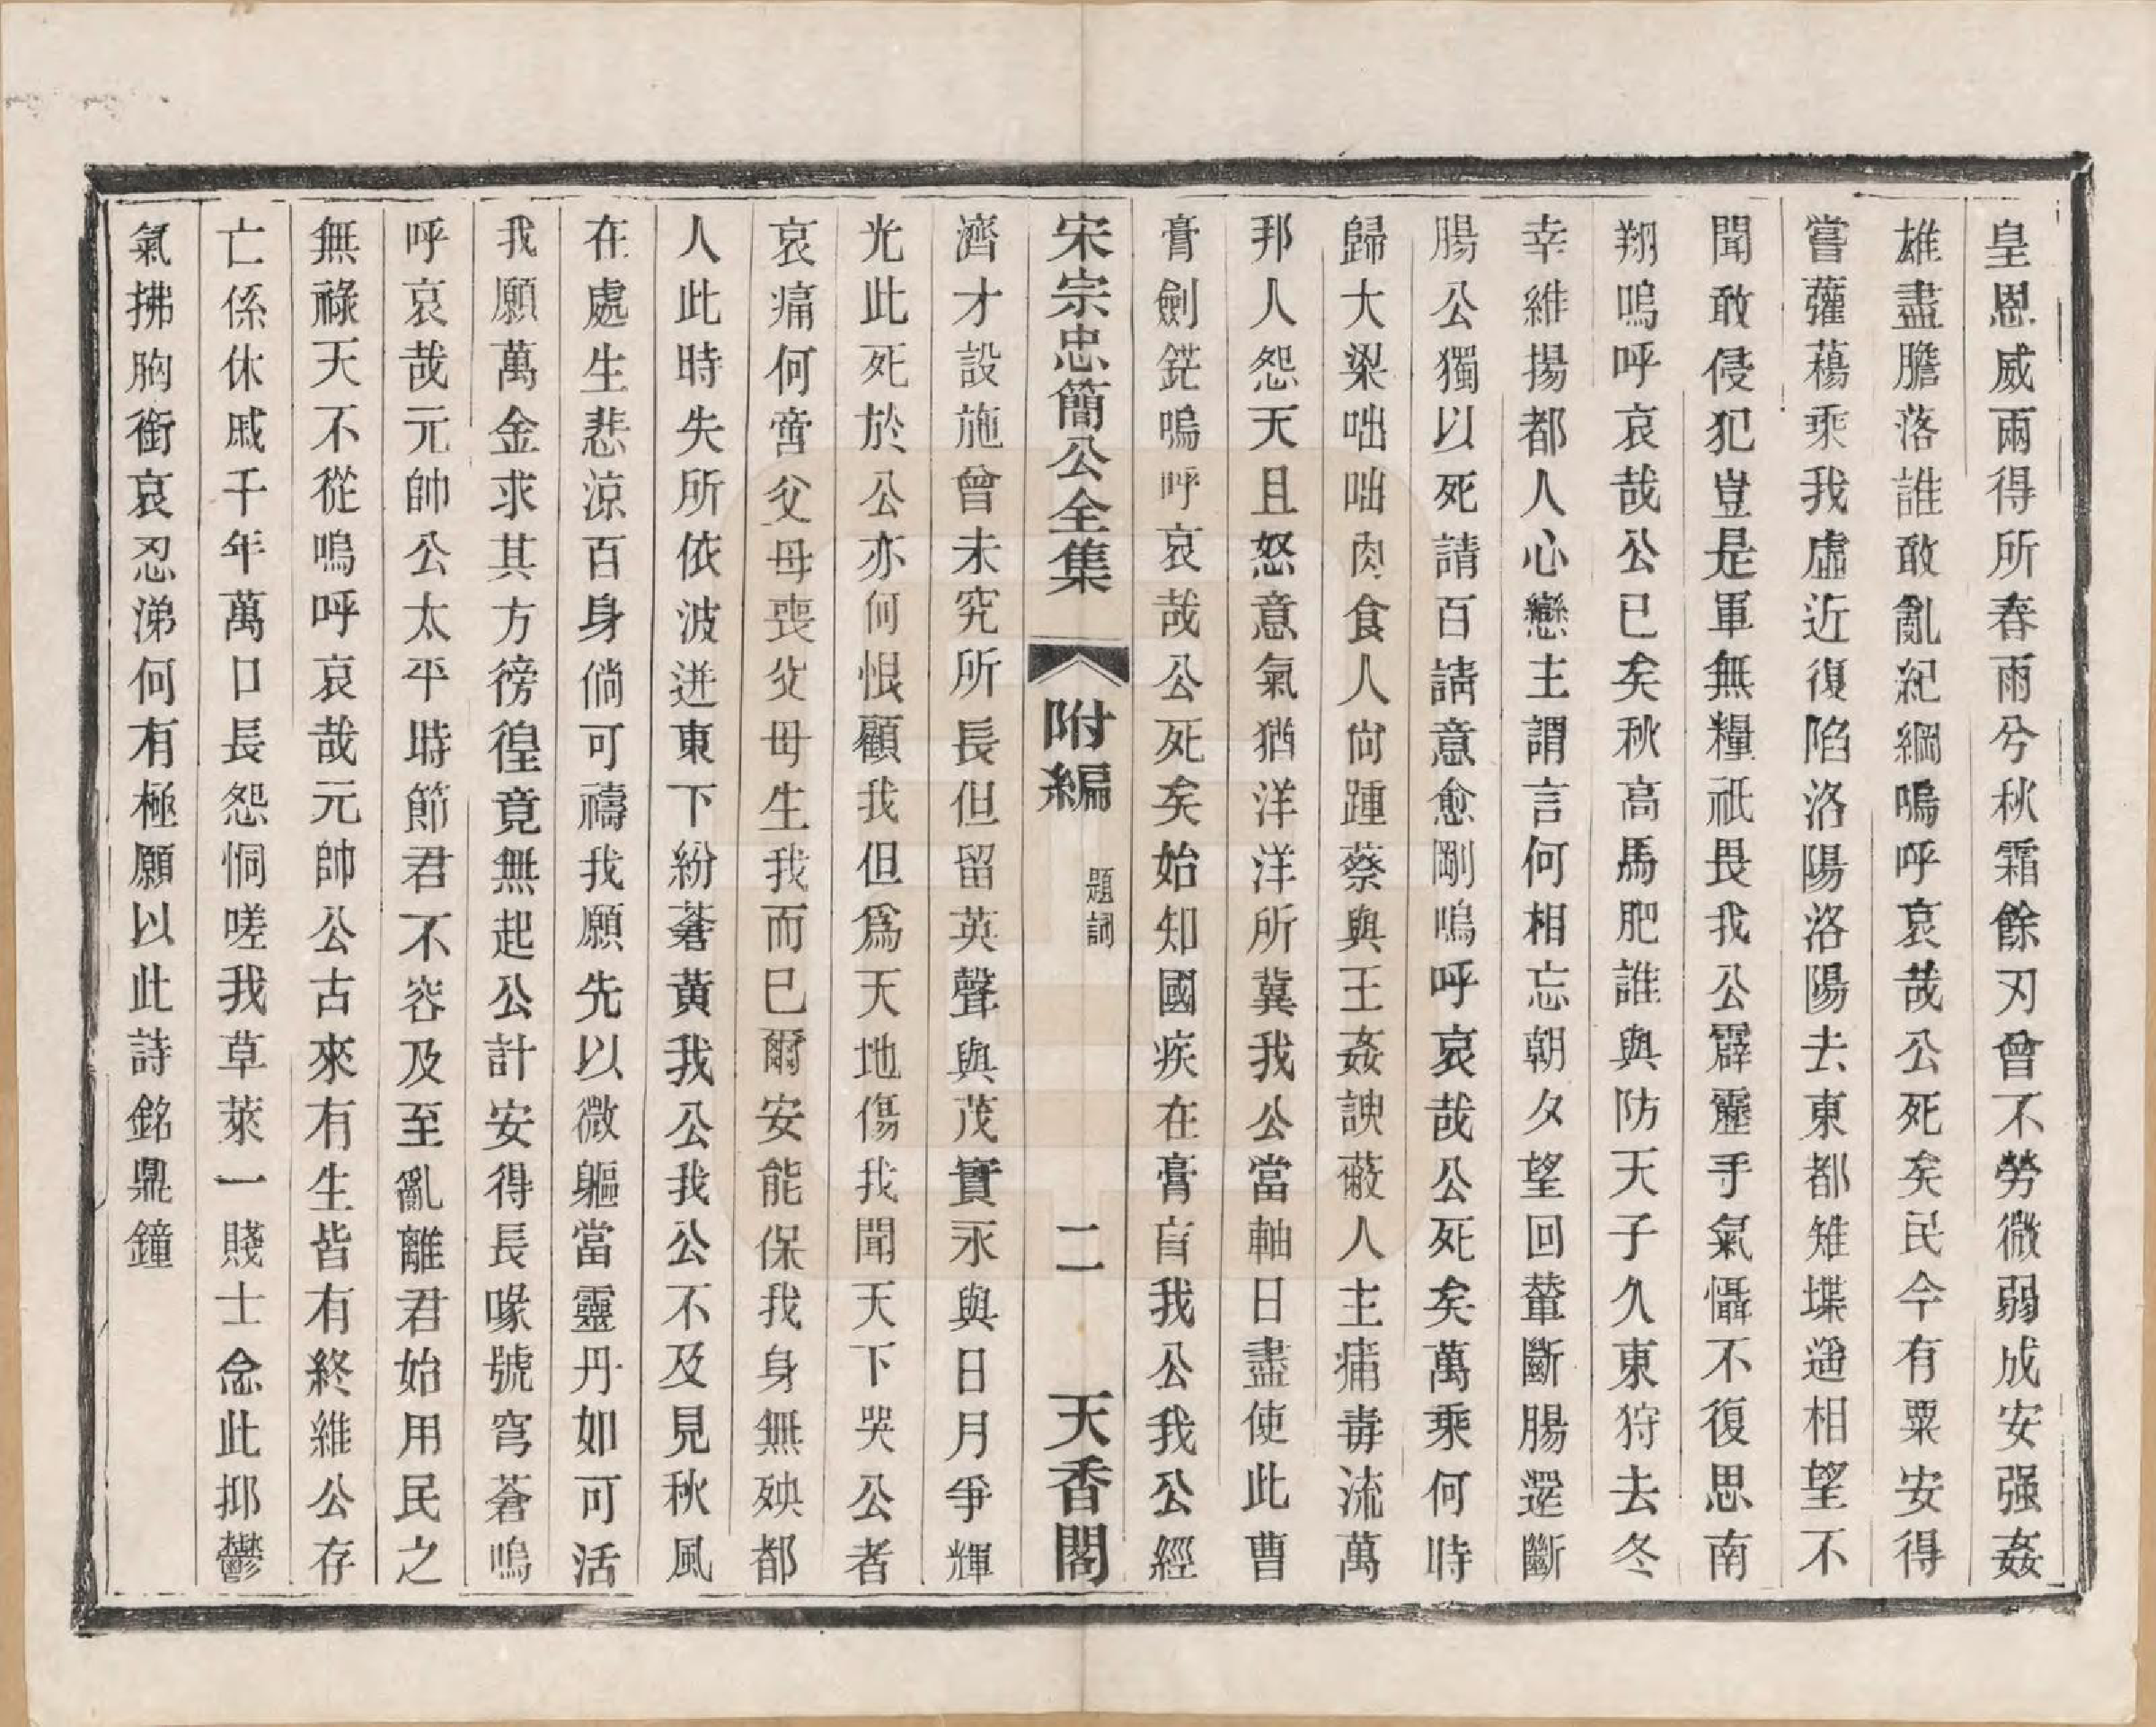 皇恩威兩得所春雨兮秋霜餘刃曾不勞微弱成安强姦
雄盡膽落誰敢亂紀綱嗚呼哀哉公死矣民今有粟安得
嘗虇蕕乘我虛近復陷洛陽洛陽去東都雉堞遥相望不
聞敢侵犯豈是軍無糧祇畏我公霹靂手氣懾不復思南
翔嗚呼哀哉公已矣秋高馬肥誰與防天子久東狩去冬
幸維揚都人心戀主謂言何相忘朝夕望回輦斷腸還斷
腸公獨以死請百請意愈剛嗚呼哀哉公死矣萬乘何時
歸大梁咄咄肉食人尙踵蔡與王姦諛蔽人主痡毒流萬
邦人怨天且怒意氣猶洋洋所冀我公當軸日盡使此曹
膏劍鋩嗚呼哀哉公死矣始知國疾在膏肓我公我公經
宋宗忠簡公全集 附編 題詞 二 天香閣
濟才設施曾未究所長但留英聲與茂實永與日月爭輝
光此死於公亦何恨顧我但爲天地傷我聞天下哭公者
哀痛何啻父母喪父母生我而已爾安能保我身無殃都
人此時失所依波迸東下紛蒼黃我公我公不及見秋風
在處生悲涼百身倘可禱我願先以微軀當靈丹如可活
我願萬金求其方徬徨竟無起公計安得長喙號穹蒼嗚
呼哀哉元帥公太平時節君不容及至亂離君始用民之
無祿天不從嗚呼哀哉元帥公古來有生皆有終維公存
亡係休戚千年萬口長怨恫嗟我草萊一賤士念此抑鬱
氣拂胸銜哀忍涕何有極願以此詩銘鼎鐘